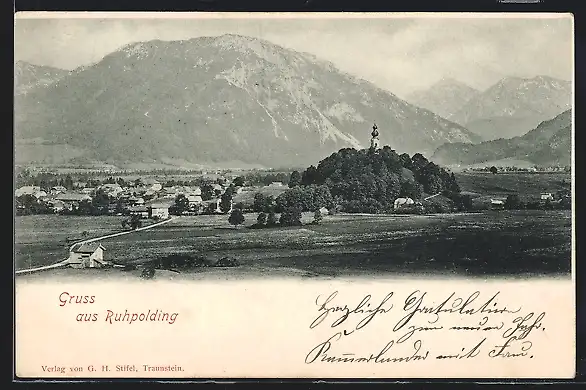 Gruss
aus Ruhpolding
Herzliche Gratulation
zum neuen Jahr.
mit Frau.
Verlag von G. H. Stifel, Traunstein.